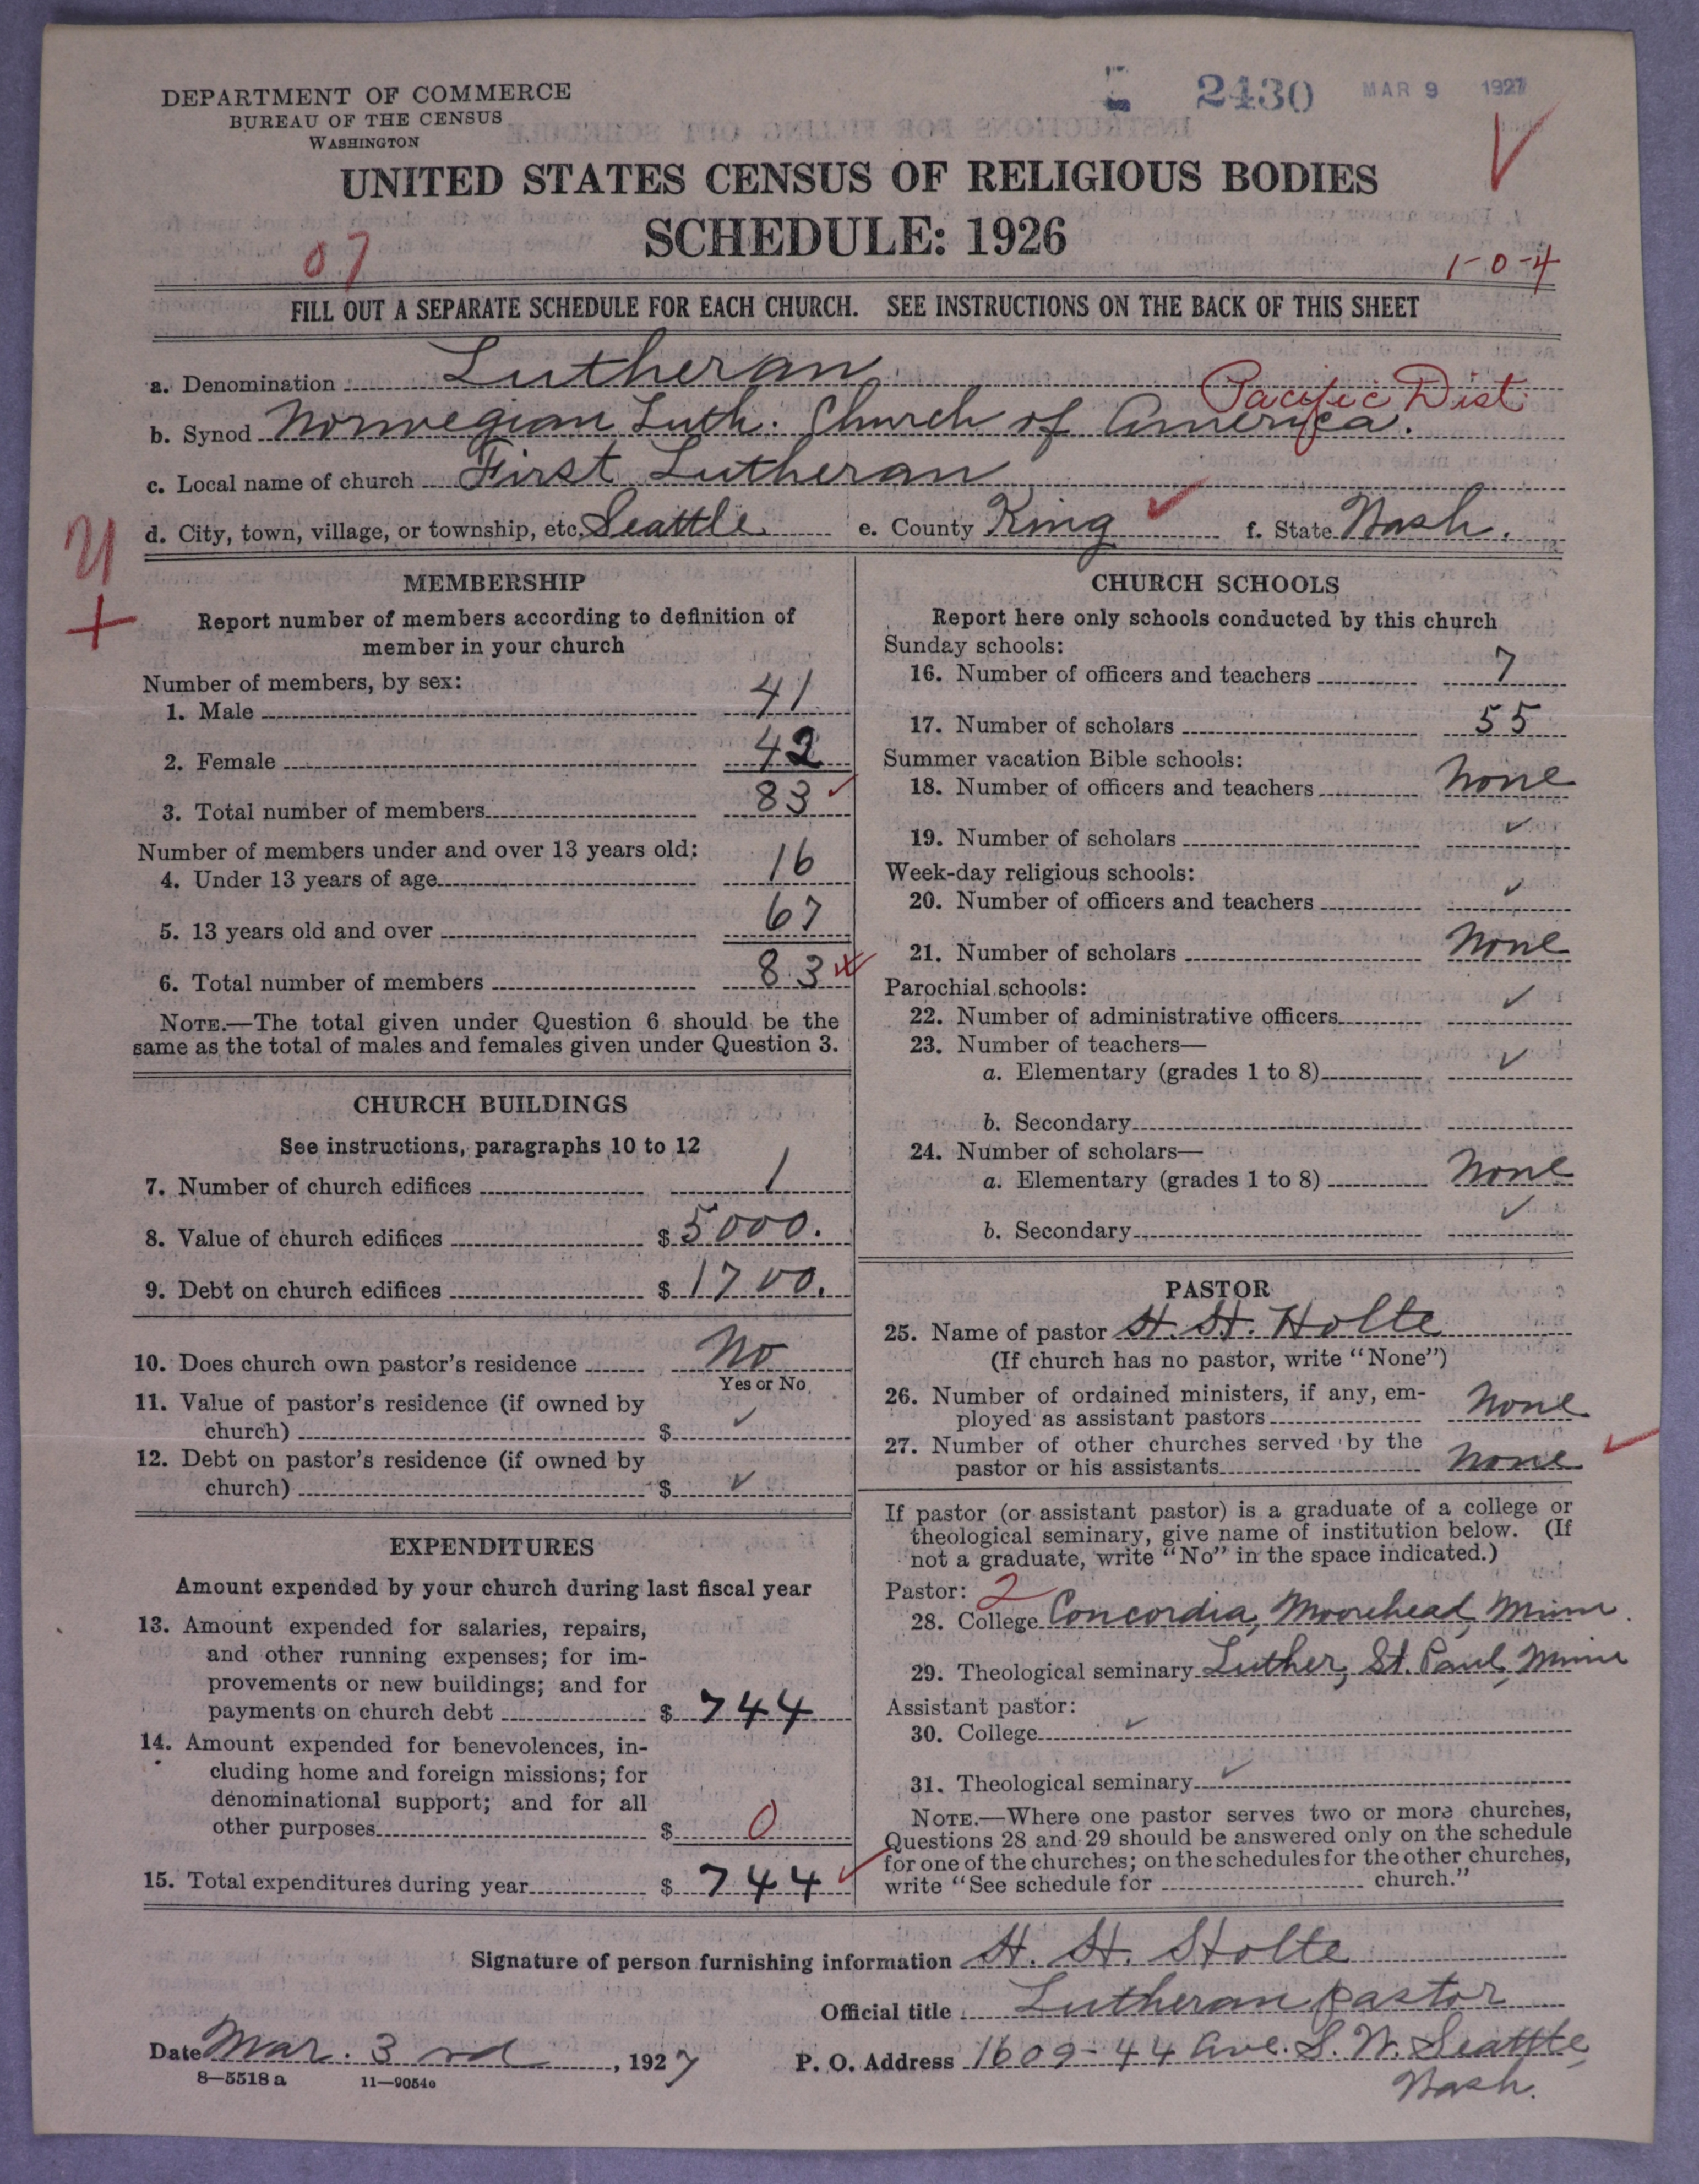 DEPARTMENT OF COMMERCE
BUREAU OF THE CENSUS
WASHINGTON
2430 MAR 9 1927
UNITED STATES CENSUS OF RELIGIOUS BODIES
SCHEDULE: 1926
07
1-0-4
FILL OUT A SEPARATE SCHEDULE FOR EACH CHURCH. SEE INSTRUCTIONS ON THE BACK OF THIS SHEET
a. Denomination Lutheran
Pacific Dist
b. Synod Norwegian Luth. Church of America.
c. Local name of church First Lutheran
d. City, town, village, or township, etc. Seattle e. County King f. State Wash.
MEMBERSHIP
Report number of members according to definition of
member in your church
Number of members, by sex:
1. Male 41
2. Female 42
3. Total number of members 83
Number of members under and over 13 years old:
4. Under 13 years of age 16
5. 13 years old and over 67
6. Total number of members 83
NOTE.—The total given under Question 6 should be the
same as the total of males and females given under Question 3.
CHURCH BUILDINGS
See instructions, paragraphs 10 to 12
7. Number of church edifices 1
8. Value of church edifices $ 5000.
9. Debt on church edifices $ 1700.
10. Does church own pastor's residence No
Yes or No
11. Value of pastor's residence (if owned by
church) $ ✓
12. Debt on pastor's residence (if owned by
church) $ ✓
EXPENDITURES
Amount expended by your church during last fiscal year
13. Amount expended for salaries, repairs,
and other running expenses; for im-
provements or new buildings; and for
payments on church debt $ 744
14. Amount expended for benevolences, in-
cluding home and foreign missions; for
denominational support; and for all
other purposes $ 0
15. Total expenditures during year $ 744
CHURCH SCHOOLS
Report here only schools conducted by this church
Sunday schools:
16. Number of officers and teachers 7
17. Number of scholars 55
Summer vacation Bible schools:
18. Number of officers and teachers None
19. Number of scholars ✓
Week-day religious schools:
20. Number of officers and teachers ✓
21. Number of scholars None
Parochial schools:
22. Number of administrative officers ✓
23. Number of teachers—
a. Elementary (grades 1 to 8) ✓
b. Secondary
24. Number of scholars—
a. Elementary (grades 1 to 8) None
b. Secondary ✓
PASTOR
25. Name of pastor H. H. Holte
(If church has no pastor, write "None")
26. Number of ordained ministers, if any, em-
ployed as assistant pastors None
27. Number of other churches served by the
pastor or his assistants None
If pastor (or assistant pastor) is a graduate of a college or
theological seminary, give name of institution below. (If
not a graduate, write "No" in the space indicated.)
Pastor: 2
28. College Concordia, Moorehead, Minn.
29. Theological seminary Luther, St. Paul, Minn
Assistant pastor:
30. College ✓
31. Theological seminary ✓
NOTE.—Where one pastor serves two or more churches,
Questions 28 and 29 should be answered only on the schedule
for one of the churches; on the schedules for the other churches,
write "See schedule for church."
Signature of person furnishing information H. H. Holte
Official title Lutheran pastor
Date Mar. 3rd, 1927 P. O. Address 1609-44 Ave. S. W. Seattle
Wash.
8—5518 a 11—9054e